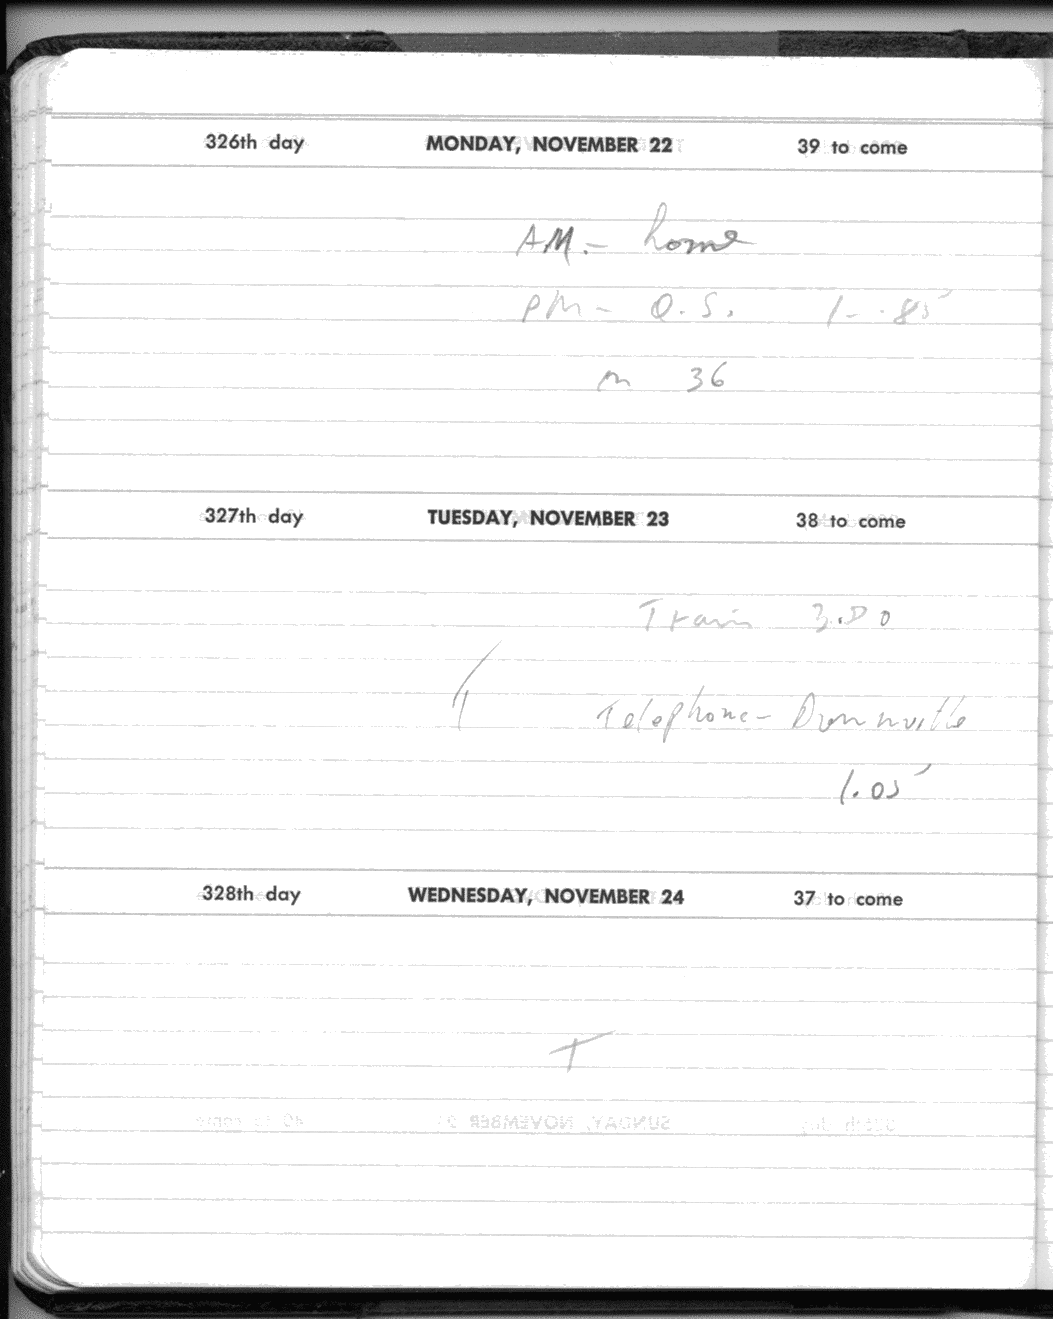 326th day MONDAY, NOVEMBER 22 39 to come
AM. - home
PM - O.S. 1 - .85
m 36
327th day TUESDAY, NOVEMBER 23 38 to come
Train 3.80
T
Telephone - Drumnville
1.05
328th day WEDNESDAY, NOVEMBER 24 37 to come
T
SUNDAY, NOVEMBER 21 40 to come